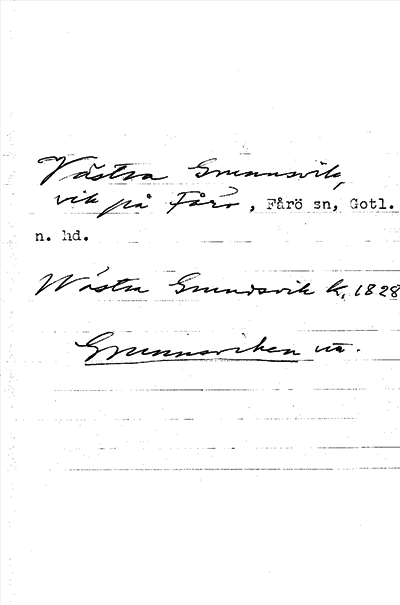 Västra Grunnsvik,
vik på Fårö, Fårö sn, Gotl.
n. hd.
Wästra Grundsvik k, 1828
Grunnsviken